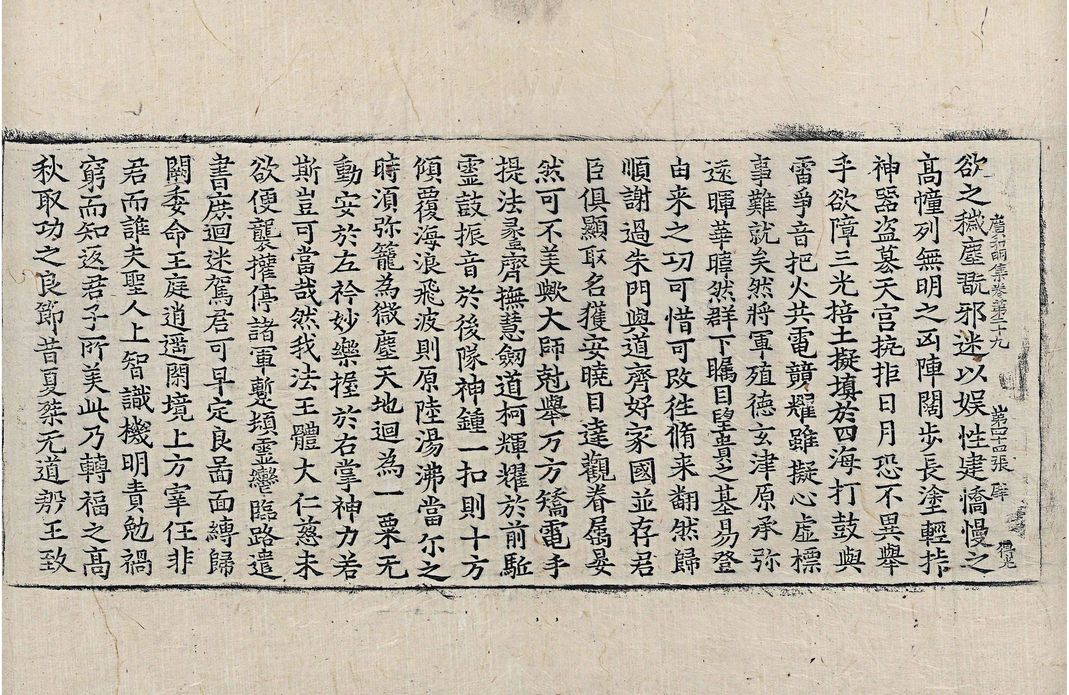 欲之穢塵翫邪迷以娱性建憍慢之
廣弘明集卷第二十九 第四十四張 
高幢列無明之凶陣闊歩長塗輕拤
神器盗篡天宫抗拒日月恐不異舉
手欲障三光掊土擬填於四海打鼓與
雷爭音把火共電競耀雖擬心虚標
事難就矣然將軍殖德玄津原承弥
遠暉華暐然群下矚目望貴之基易登
由来之功可惜可改徃脩来翻然歸
順謝過朱門與道齊好家國並存君
臣俱顯取名獲安曉目達觀眷属晏
然可不美歟大師尅舉万方矯電手
提法蠡齊撫慧劒道柯輝耀於前駈
靈鼓振音於後隊神鍾一扣則十方
傾覆海浪飛波則原陸湯沸當尓之
時湏弥籠為微塵天地迴為一粟无
動安於左衿妙樂握於右掌神力若
斯豈可當哉然我法王體大仁慈未
欲便襲權停諸軍蹔頓靈轡臨路遣
書庶迴迷駕君可早定良啚面縛歸
闕委命王庭逍遥閑境上方宰任非
君而誰夫聖人上智識機明責勉禍
窮而知返君子所美此乃轉福之高
秋取功之良節昔夏桀无道殷王致